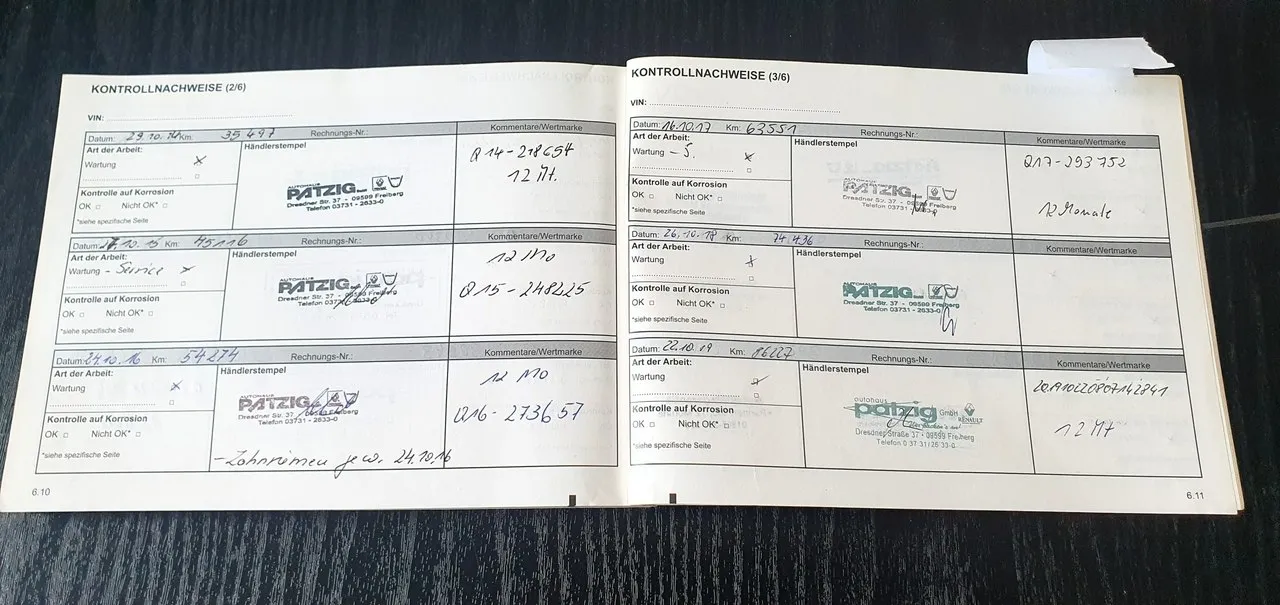 KONTROLLNACHWEISE (2/6)
VIN:
Datum: 29.10.14 Km: 35497 Rechnungs-Nr.: Kommentare/Wertmarke
Art der Arbeit: Händlerstempel
Wartung x
Q14-218654
12 Mt.
Kontrolle auf Korrosion
OK Nicht OK*
*siehe spezifische Seite
AUTOHAUS
PATZIG
Dresdner Str. 37 - 09599 Freiberg
Telefon 03731 - 2633-0
Datum: 10.15 Km: 45116 Rechnungs-Nr.: Kommentare/Wertmarke
Art der Arbeit: Händlerstempel
Wartung - Service x
12 Mo
Q15-248225
Kontrolle auf Korrosion
OK Nicht OK*
*siehe spezifische Seite
AUTOHAUS
PATZIG
Dresdner Str. 37 - 09599 Freiberg
Telefon 03731 - 2633-0
Datum: 24.10.16 Km: 54274 Rechnungs-Nr.: Kommentare/Wertmarke
Art der Arbeit: Händlerstempel
Wartung x
12 Mo
Q16-273657
Kontrolle auf Korrosion
OK Nicht OK*
*siehe spezifische Seite
AUTOHAUS
PATZIG
Dresdner Str. 37 - Freiberg
Telefon 03731 - 2633-0
- Zahnriemen gew. 24.10.16
6.10
KONTROLLNACHWEISE (3/6)
VIN:
Datum: 16.10.17 Km: 63551 Rechnungs-Nr.: Kommentare/Wertmarke
Art der Arbeit: Händlerstempel
Wartung - S. x
Q17-293752
12 Monate
Kontrolle auf Korrosion
OK Nicht OK*
*siehe spezifische Seite
AUTOHAUS
PATZIG
Dresdner Str. 37 - 09599 Freiberg
Telefon 03731 - 2633-0
Datum: 26.10.18 Km: 74436 Rechnungs-Nr.: Kommentare/Wertmarke
Art der Arbeit: Händlerstempel
Wartung x
Kontrolle auf Korrosion
OK Nicht OK*
*siehe spezifische Seite
AUTOHAUS
PATZIG
Dresdner Str. 37 - 09599 Freiberg
Telefon 03731 - 2633-0
Datum: 22.10.19 Km: 86227 Rechnungs-Nr.: Kommentare/Wertmarke
Art der Arbeit: Händlerstempel
Wartung x
12 Mt
Kontrolle auf Korrosion
OK Nicht OK*
*siehe spezifische Seite
autohaus
patzig GmbH
RENAULT
Dresdner Straße 37 · 09599 Freiberg
Telefon 0 37 31/26 33-0
6.11